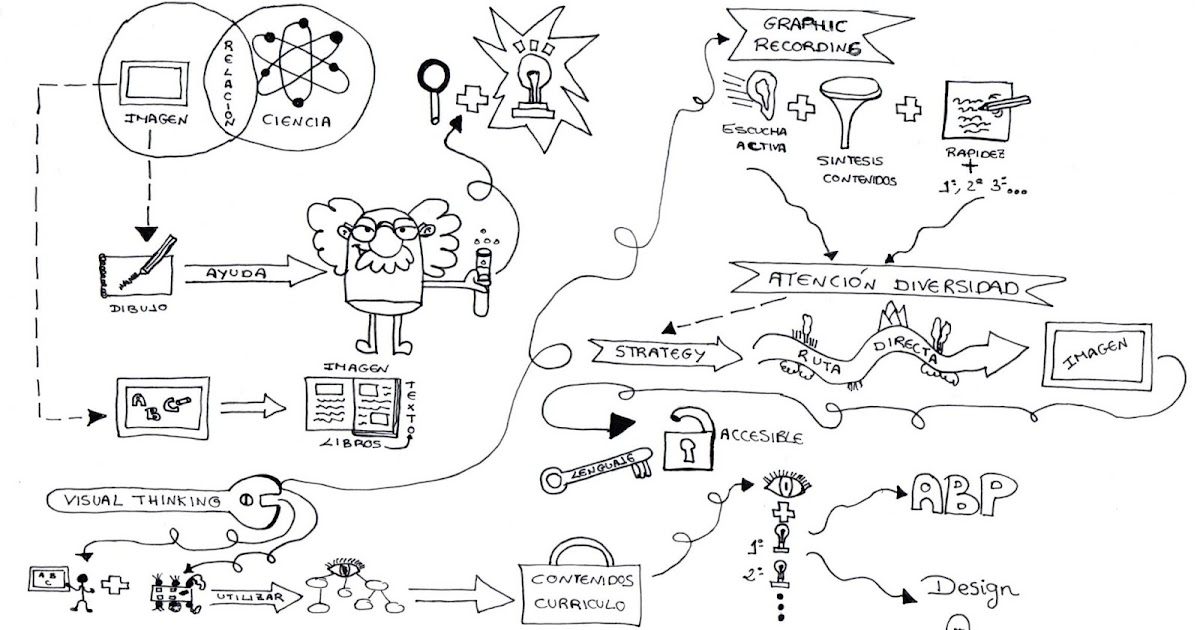 RELACIÓN
IMAGEN
CIENCIA
DIBUJO
AYUDA
IMAGEN
TEXTO
LIBROS
A B C
VISUAL THINKING
A B
C
UTILIZAR
CONTENIDOS
CURRICULO
GRAPHIC
RECORDING
ESCUCHA
ACTIVA
SINTESIS
CONTENIDOS
RAPIDEZ
+
1º, 2º 3º...
ATENCIÓN DIVERSIDAD
STRATEGY
RUTA DIRECTA
IMAGEN
LENGUAJE
ACCESIBLE
1º
2º
ABP
Design